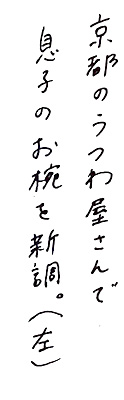 京都のうつわ屋さんで
息子のお椀を新調。(左)